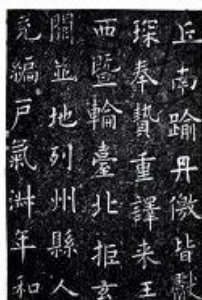 丘南踰丹徼皆獻
琛奉贄重譯来王
西暨輪臺北拒玄
闕並地列州縣人
充編戶氣淑年和